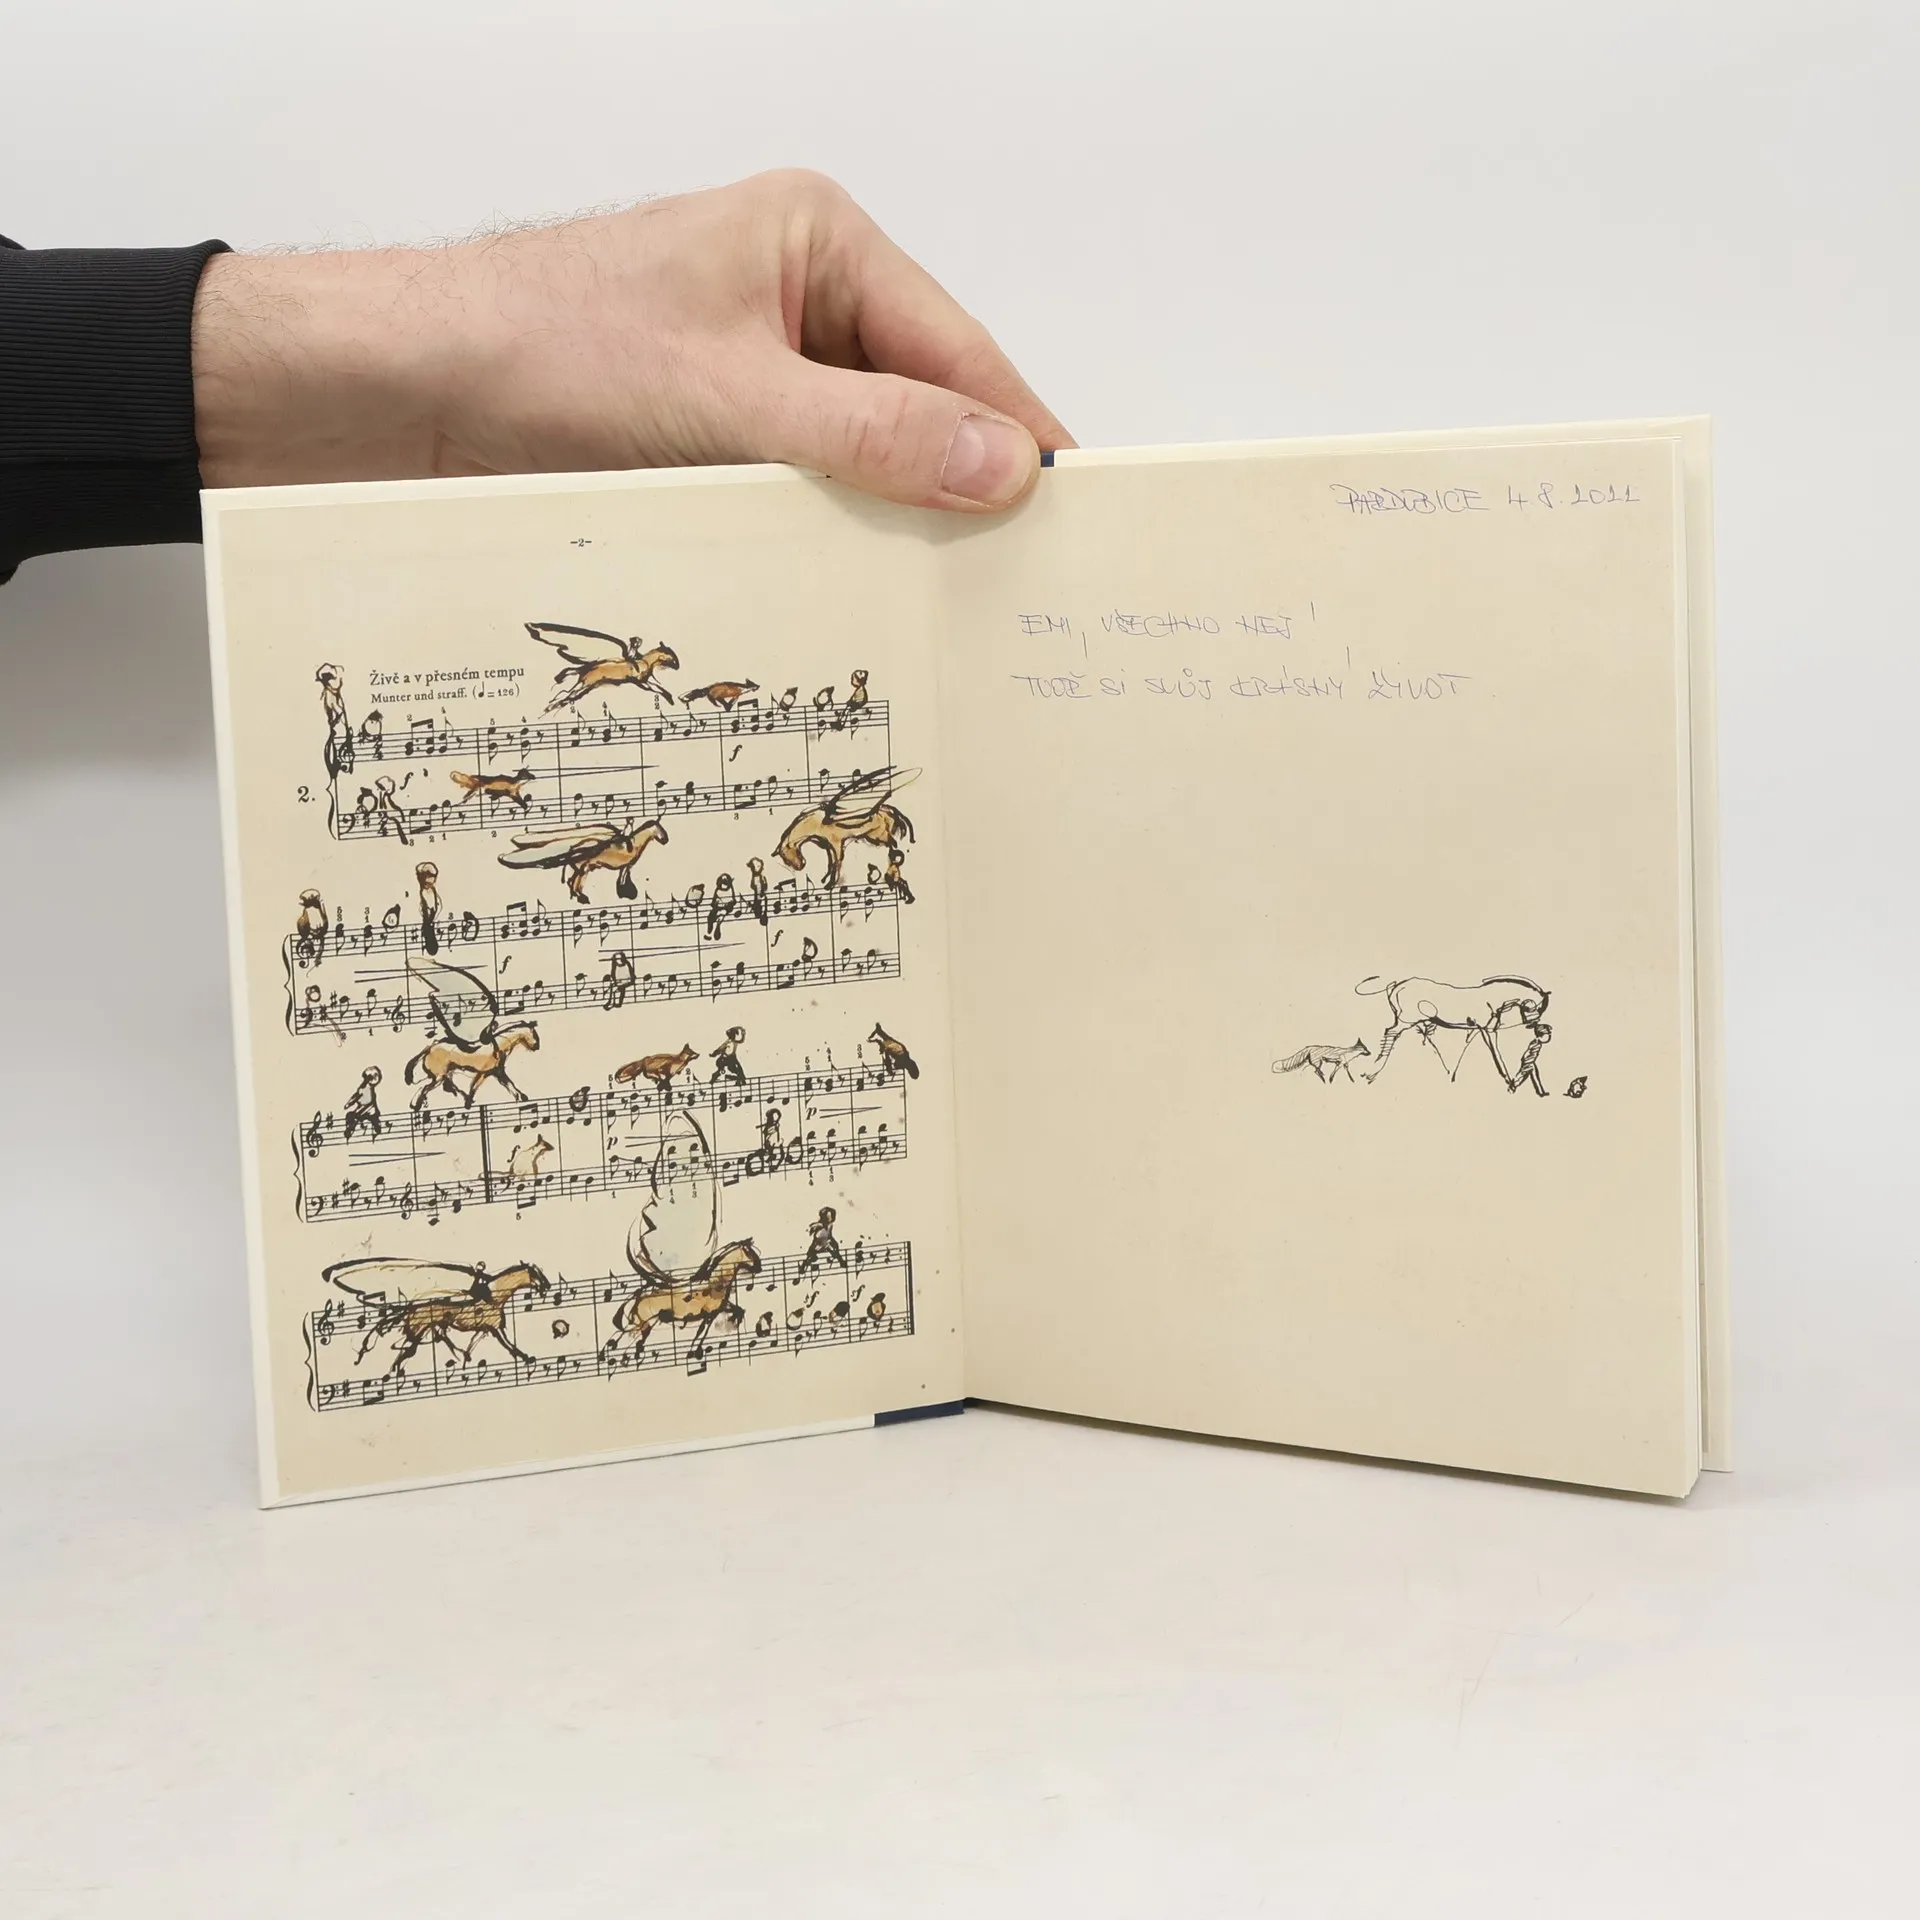 -2-
Živě a v přesném tempu
Munter und straff. (♩= 126)
2.
PARDUBICE 4.8.2022
EMI, VŠECHNO NEJ!
TVOŘ SI SVŮJ KRÁSNÝ ŽIVOT.